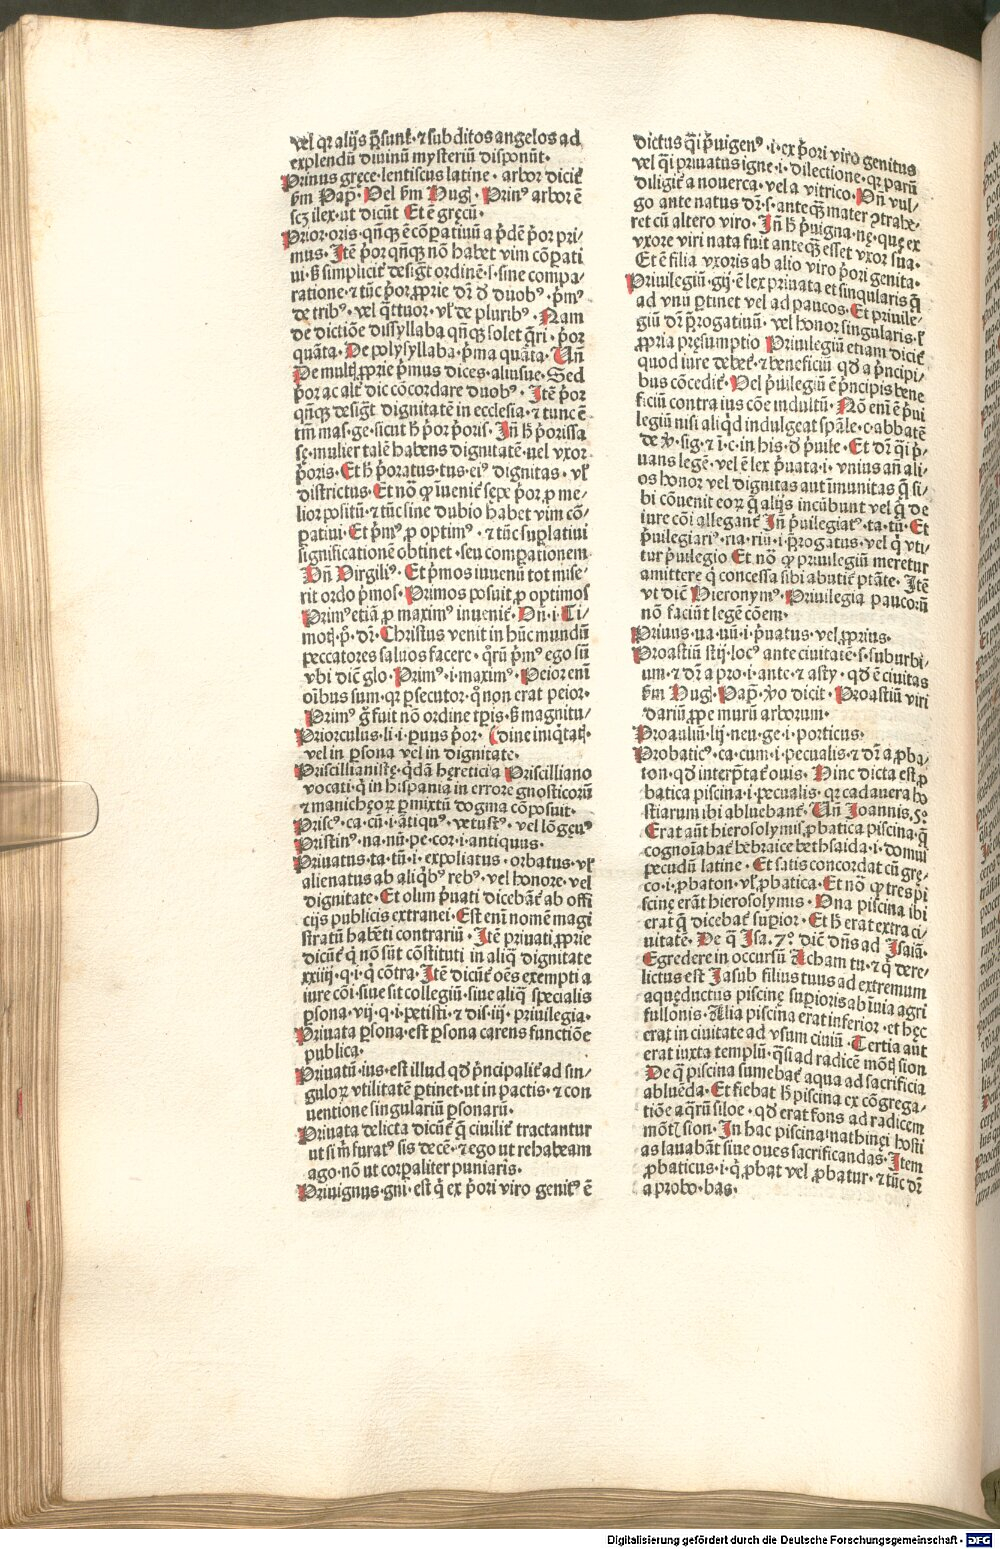 vel qr alijs p̄sunt. ⁊ subditos angelos ad
explendū diuinū mysteriū disponūt.
Prinus gręce. lentiscus latine. arbor dicit᷑
s̄m Pap̄. Vel s̄m Hug. Prinꝰ arbor ē
scꝫ ilex. ut dicūt Et ē gręcū.
Prior. oris. qñqꝫ ē cōꝑatiuū a p̄dē p̓or pri/
mus. Itē p̓or qñqꝫ nō habet vim cōꝑati
ui. sꝫ simplicit᷑ desigt̄ ordinē. s. sine compa/
ratione. ⁊ tūc p̓or ꝓprie dr̄ d̄ duobꝰ. p̓mꝰ
de tribꝰ. vel q̄ttuor. vl̓ de pluribꝰ. Nam
de dictiōe dissyllaba qñqꝫ solet q̄ri. p̓or
quāta. De polysyllaba. p̓ma quāta. Vn̄
De multꝭ ꝓprie p̓mus dices. aliusue. Sed
p̓or ac alt᷑ dic cōcordare duobꝰ. Itē p̓or
qñqꝫ desigt̄ dignitatē in ecclesia. ⁊ tunc ē
tm̄ mas. ge. sicut h̓ p̓or p̓oris. Jn̄ h̓ p̓orissa
sę. mulier talē habens dignitatē. uel vxor
p̓oris. Et h̓ p̓oratus. tus. eiꝰ dignitas. vl̓
districtus. Et nō ꝙ īuenit᷑ sępe p̓or ꝓ me/
lior positū. ⁊ tūc sine dubio habet vim cō/
ꝑatiui. Et p̓mꝰ ꝓ optimꝰ. ⁊ tūc suꝑlatiui
significationē obtinet. seu comꝑationem
Vn̄ Virgiliꝰ. Et p̓mos iuuenū tot mise/
rit ordo p̓mos. Primos posuit ꝓ optimos
Primꝰ etiā ꝓ maximꝰ inuenit᷑. Vn̄. i. Ti/
moꝭ. p̓. dr̄. Christus venit in hūc mundū
peccatores saluos facere. qͦrū p̓mꝰ ego sū
vbi diē glo. Primꝰ. i. maximꝰ. Peior eni
oībus sum. qr ꝑsecutor. qͦ non erat peior.
Primꝰ g̊ fuit nō ordine tꝑis. sꝫ magnitu/
Priorculus. li. i. ꝑuus p̓or. (dine iniqͥtatꝭ.
vel in ꝑsona vel in dignitate.
Priscillianistę. qͥdā hęretici a Priscilliano
vocati. qͥ in hispania in errore gnosticorū
⁊ manichęoꝝ ꝑmixtū dogma cōposuit.
Priscꝰ. ca. cū. i. ātiquꝰ. vetustꝰ. vel lōgęuꝰ
Pristinꝰ. na. nū. pe. cor. i. antiquus.
Priuatus. ta. tū. i. expoliatus. orbatus. vl̓
alienatus ab aliqͥbꝰ rebꝰ. vel honore. vel
dignitate. Et olim p̓uati dicebāt᷑ ab offi
cijs publicis extranei. Est eni nomē magi
stratū habēti contrariū. Itē priuati ꝓprie
dicūt᷑ qͥ nō sūt cōstituti in aliq̄ dignitate
xxiiij. q. i. qͥ cōtra. Itē dicūt᷑ oēs exempti a
iure cōi. siue sit collegiū. siue aliq̄ specialis
ꝑsona. vij. q. i. ꝑetisti. ⁊ dis. iij. priuilegia.
Priuata ꝑsona. est ꝑsona carens functiōe
publica.
Priuatū. ius. est illud qd̓ p̓ncipalit᷑ ad sin/
guloꝝ vtilitatē ꝑtinet. ut in pactis. ⁊ con
uentione singulariū ꝑsonarū.
Priuata delicta dicūt᷑ q̄ ciuilit᷑ tractantur
ut si m̓ furatꝰ sis decē. ⁊ ego ut rehabeam
ago. nō ut corꝑaliter puniaris.
Priuignus. gni. est qͥ ex p̓ori viro genitꝰ ē
dictus q̄si p̓uigenꝰ. i. ex p̓ori viro genitus
vel q̄si priuatus igne. i. dilectione. qr parū
diligit᷑ a nouerca. vel a vitrico. Vn̄ vul/
go ante natus dr̄. s. ante qꝫ mater ꝯtrahe/
ret cū altero viro. Jn̄ h̓ p̓uigna. nę. quę ex
vxore viri nata fuit ante qꝫ esset vxor sua.
Et ē filia vxoris ab alio viro p̓ori genita.
Priuilegiū. gij. ē lex priuata et singularis q̄
ad vnū ꝑtinet vel ad paucos. Et priuile/
giū dr̄ p̄rogatiuū. vel honor singularis. l̓
ꝓpria pręsumptio Priuilegiū etiam dicit᷑
quod iure debet᷑. ⁊ beneficiū qd̓ a p̓ncipi/
bus cōcedit᷑. Vel p̓uilegiū ē p̓ncipis bene
ficiū contra ius cōe indultū. Nō eni ē p̓ui
legiū nisi aliqͥd indulgeat spāle. c. abbatē
de v̓. sig. ⁊ i. c. in his. d̓ p̓uile. Et dr̄ q̄si p̓/
uans legē. vel ē lex p̓uata. i. vnius an̄ ali/
os honor vel dignitas aut īmunitas q̄ si/
bi cōuenit eoꝝ q̄ alijs incūbunt vel q̄ de
iure cōi allegant᷑ Jn̄ p̓uilegiatꝰ. ta. tū. Et
p̓uilegiariꝰ. ria. riū. i. p̄rogatus. vel qͥ vti/
tur p̓uilegio Et nō ꝙ priuilegiū meretur
amittere qͥ concessa sibi abutit᷑ ptāte. Itē
vt diē Hieronymꝰ. Priuilegia paucorū
nō faciūt legē cōem.
Priuus. ua. uū. i. p̓uatus. vel ꝓprius.
Proastiū stij. locꝰ ante ciuitatē. s. suburbi/
um. ⁊ dr̄ a pro. i. ante. ⁊ asty. qd̓ ē ciuitas
s̄m Hug. Pap̄. v̓o dicit. Proastiū viri
dariū ꝓpe murū arborum.
Proauliū. lij. neu. ge. i. porticus.
Probaticꝰ. ca. cum. i. pecualis. ⁊ dr̄ a ꝓba/
ton. qd̓ interp̄tat᷑ ouis. Hinc dicta est ꝓ
batica piscina. i. pecualis. qr cadauera ho
stiarum ibi abluebant᷑. Vn̄ Joannis. 5°
Erat aūt hierosolymis ꝓbatica piscina. q̄
cognoīabat᷑ hebraice bethsaida. i. domus
pecudū latine. Et satis concordat cū gre/
co. i. ꝓbaton. vl̓ ꝓbatica. Et nō ꝙ tres pi
scinę erāt hierosolymis. Vna piscina ibi
erat q̄ dicebat᷑ suꝑior. Et h̓ erat extra ci/
uitatē. De q̄ Isa. 7° diē dn̄s ad Isaiā.
Egredere in occursū Acham tu. ⁊ qͥ dere/
lictus est Jasub filius tuus ad extremum
aquęductus piscinę suꝑioris ab ī uia agri
fullonis. Alia piscina erat inferior. et hęc
erat in ciuitate ad vsum ciuiū. Tertia aut
erat iuxta templū. q̄si ad radicē mōtꝭ sion
De q̄ piscina sumebat᷑ aqua ad sacrificia
abluēda. Et fiebat h̓ piscina ex cōgrega/
tiōe aq̄rū siloe. qd̓ erat fons ad radicem
mōtꝭ sion. Jn hac piscina nathinęi hosti
as lauabāt siue oues sacrificandas. Item
ꝓbaticus. i. qͥ ꝓbat vel ꝓbatur. ⁊ tūc dr̄
a probo. bas.
Digitalisierung gefördert durch die Deutsche Forschungsgemeinschaft - DFG